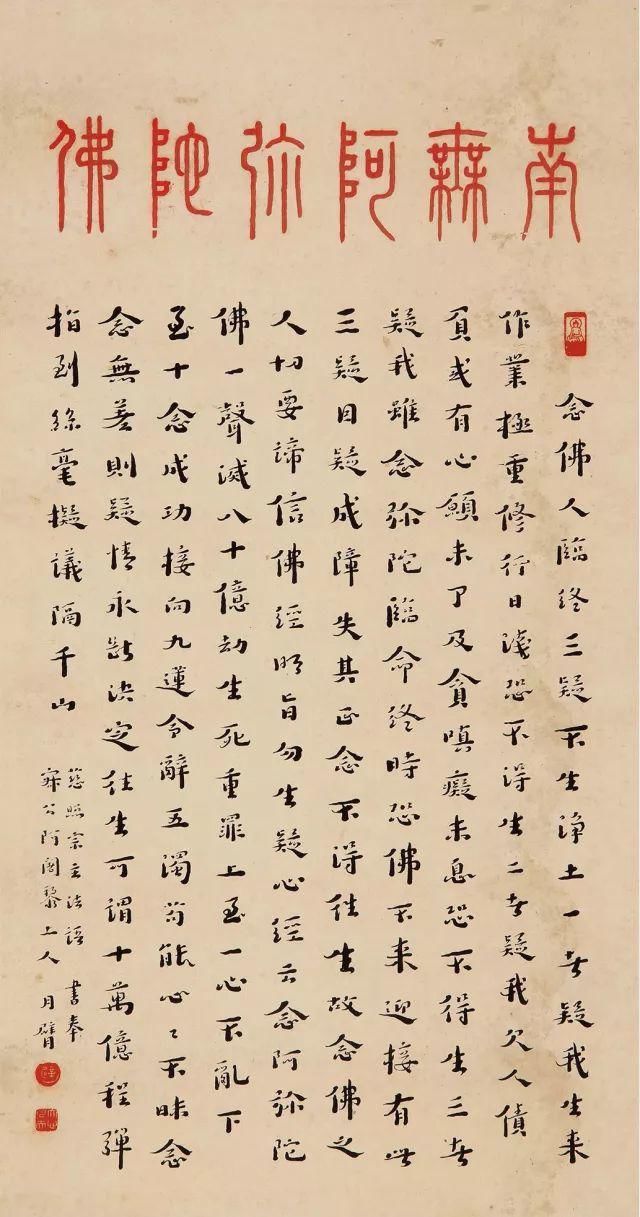 南無阿弥陀佛
念佛人臨終三疑不生淨土一者疑我生来
作業極重修行日淺恐不得生二者疑我欠人債
負或有心願未了及貪嗔癡未息恐不得生三者
疑我雖念弥陀臨命終時恐佛不来迎接有此
三疑因疑成障失其正念不得往生故念佛之
人切要諦信佛經明旨勿生疑心經云念阿弥陀
佛一聲滅八十億劫生死重罪上至一心不亂下
至十念成功接向九蓮令辭五濁苟能心々不昧念
念無差則疑情永斷決定往生可謂十萬億程彈
指到絲毫擬議隔千山
慈照宗主法語 書奉
寂公阿闍黎上人 月臂